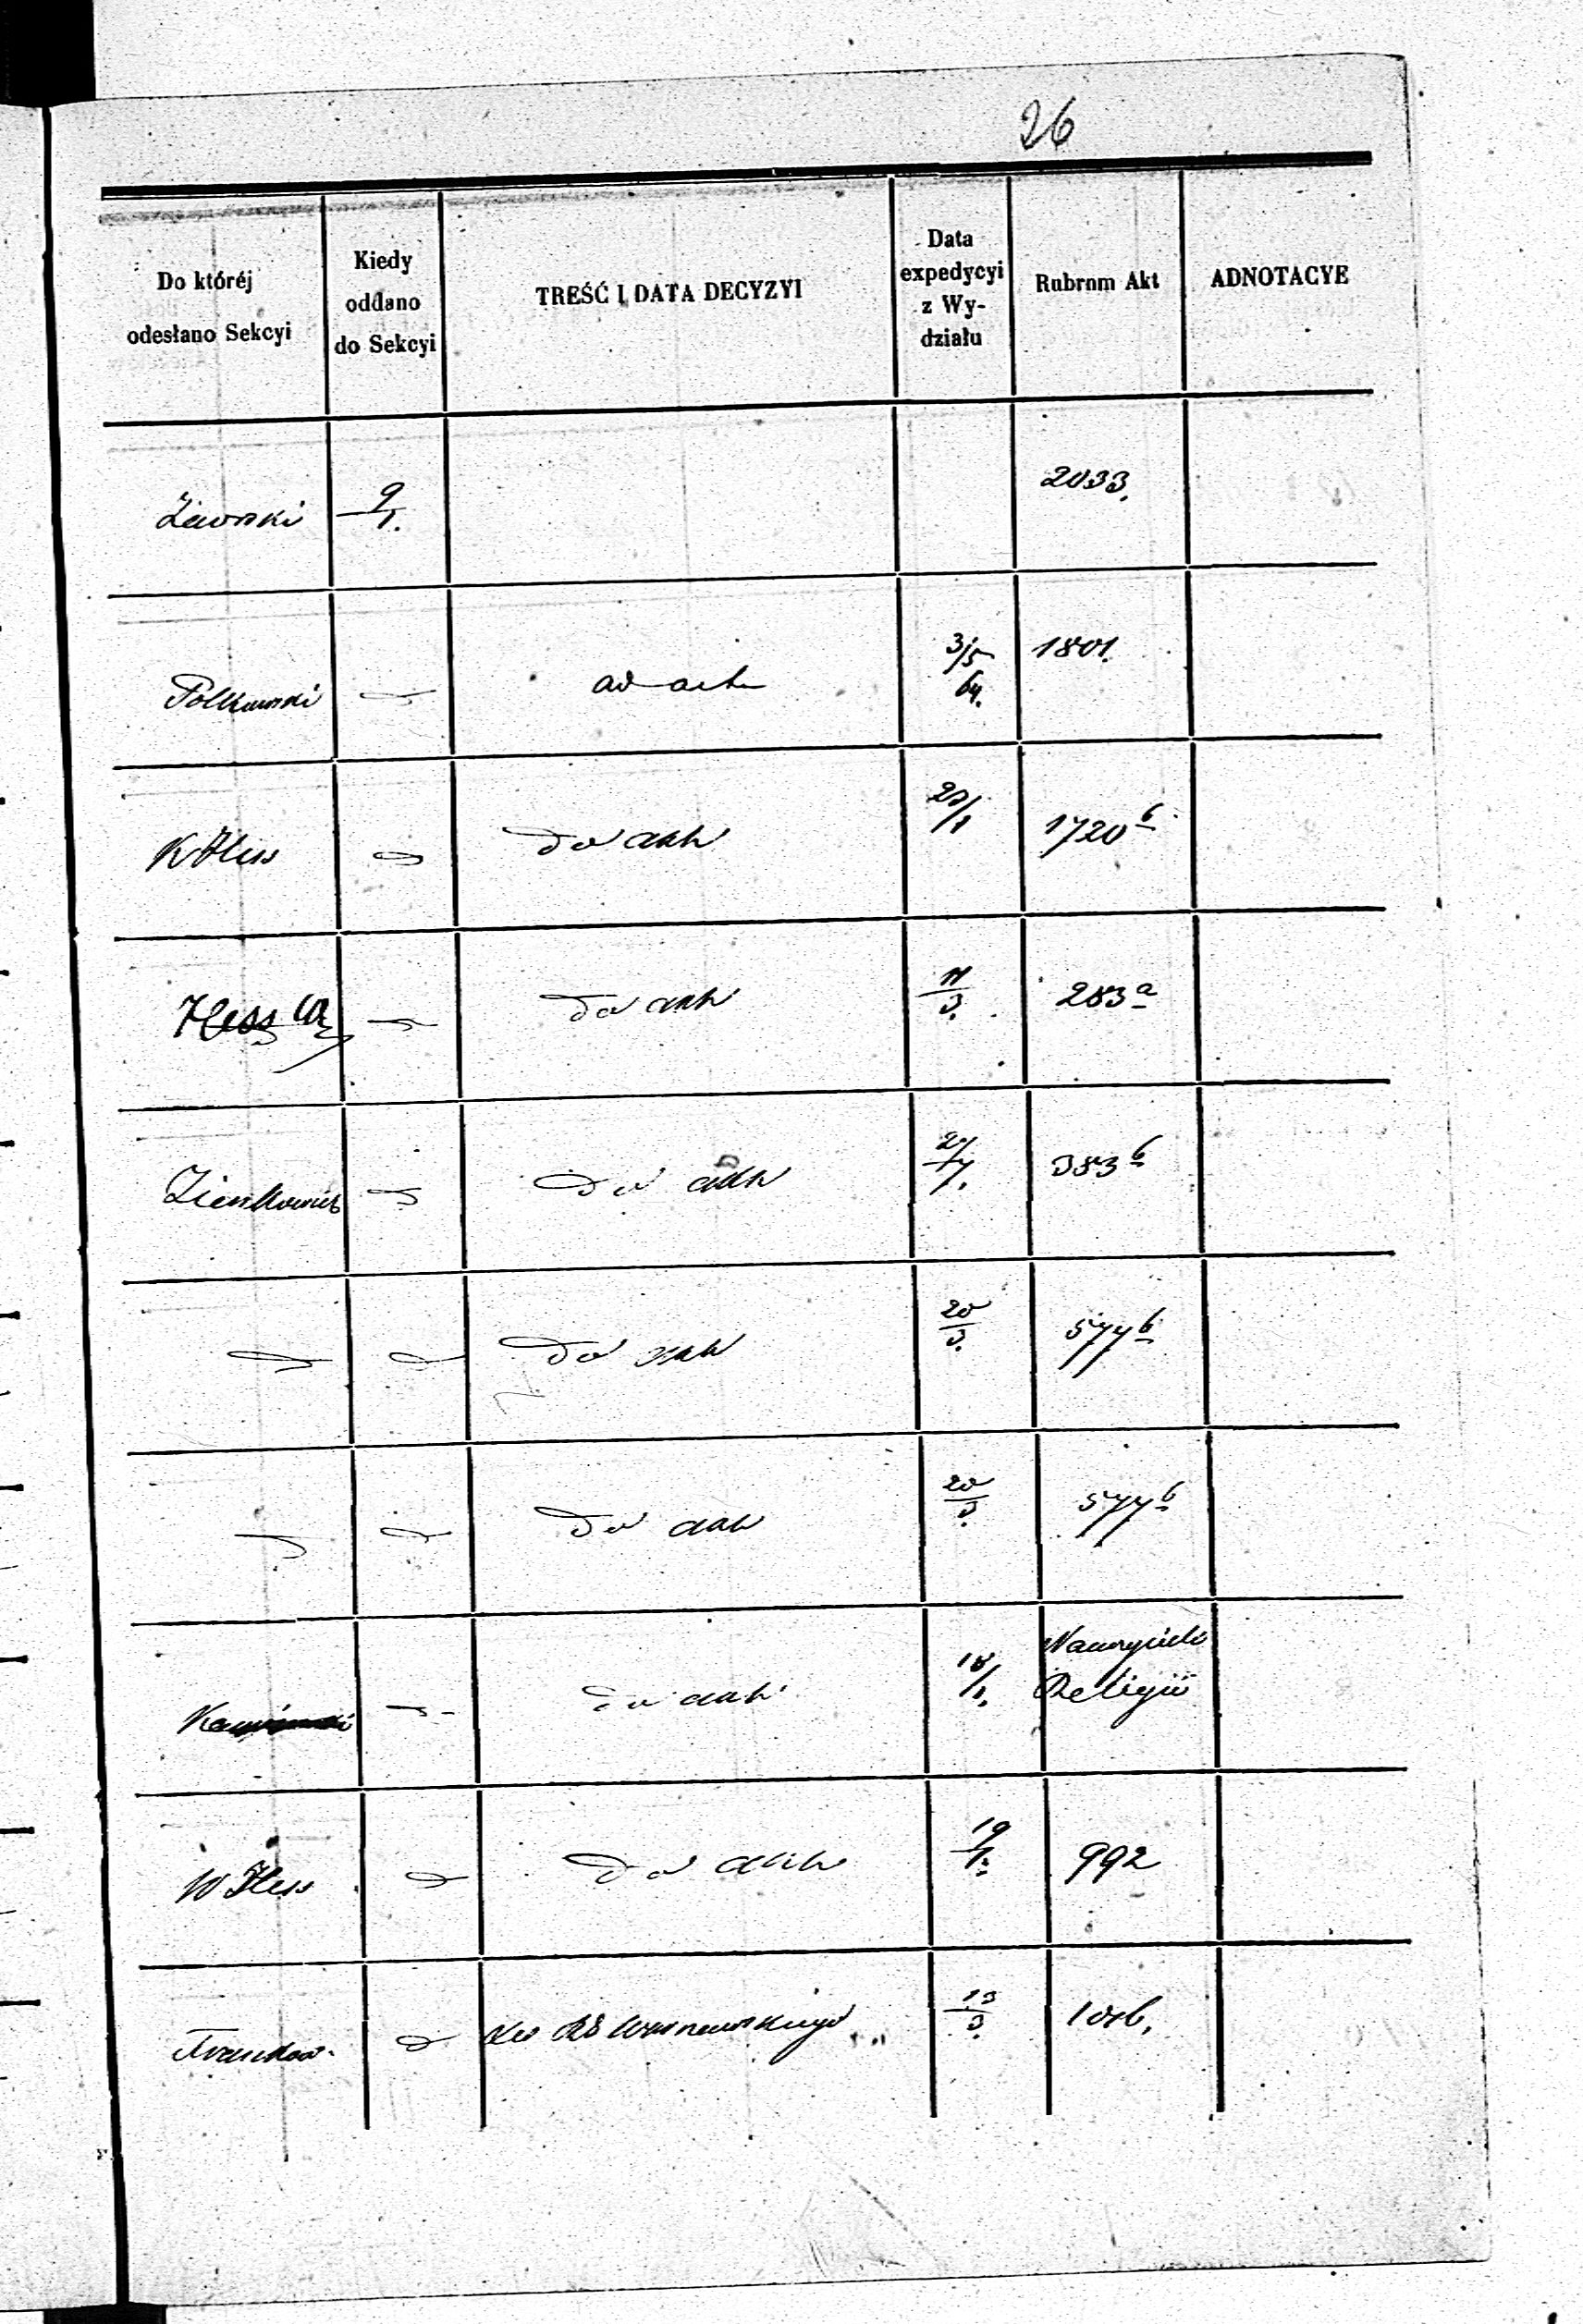 26
Do któréj
odesłano Sekcyi
Kiedy
oddano
do Sekcyi
TREŚĆ I DATA DECYZYI
Data
expedycyi
z Wy-
działu
Rubrnm Akt
ADNOTACYE
9/1. 2033.
Polkowski ad acta 3/5 64. 1801.
K Hess do akt 1720 b
Hess do akt 11/3. 283 a
Zienkowicz do akt 383 b
do akt 20/3. 577 b
do akt 20/3. 577 b
do akt 18/1. Nauczyciele
Religii
W Hess do akt 19/1. 992
do 13/3.